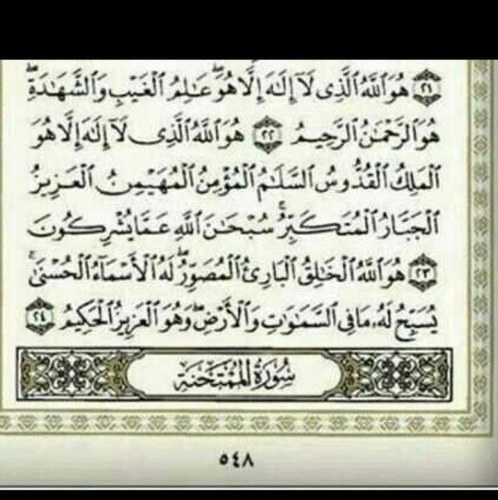 ٢١ هُوَ ٱللَّهُ ٱلَّذِى لَآ إِلَٰهَ إِلَّا هُوَ ۖ عَٰلِمُ ٱلْغَيْبِ وَٱلشَّهَٰدَةِ ۖ
هُوَ ٱلرَّحْمَٰنُ ٱلرَّحِيمُ ٢٢ هُوَ ٱللَّهُ ٱلَّذِى لَآ إِلَٰهَ إِلَّا هُوَ
ٱلْمَلِكُ ٱلْقُدُّوسُ ٱلسَّلَٰمُ ٱلْمُؤْمِنُ ٱلْمُهَيْمِنُ ٱلْعَزِيزُ
ٱلْجَبَّارُ ٱلْمُتَكَبِّرُ ۚ سُبْحَٰنَ ٱللَّهِ عَمَّا يُشْرِكُونَ
٢٣ هُوَ ٱللَّهُ ٱلْخَٰلِقُ ٱلْبَارِئُ ٱلْمُصَوِّرُ ۖ لَهُ ٱلْأَسْمَآءُ ٱلْحُسْنَىٰ ۚ
يُسَبِّحُ لَهُۥ مَا فِى ٱلسَّمَٰوَٰتِ وَٱلْأَرْضِ ۖ وَهُوَ ٱلْعَزِيزُ ٱلْحَكِيمُ ٢٤
سُورَةُ المُمْتَحنَة
٥٤٨